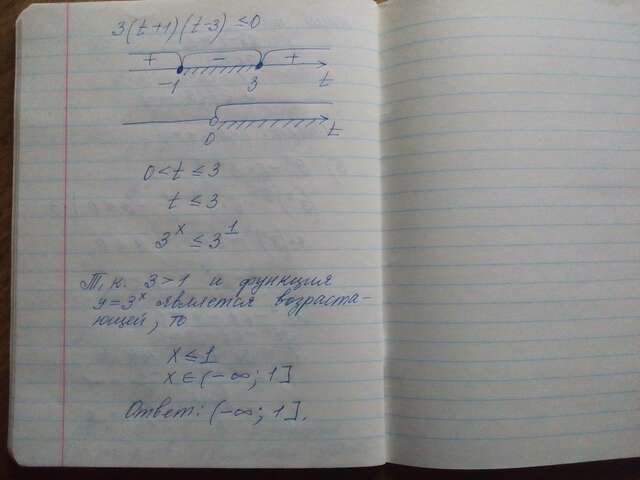 3(t+1)(t-3) ≤ 0
+ - +
-1 3 t
0 t
0 < t ≤ 3
t ≤ 3
3^x ≤ 3^1
Т.к. 3 > 1 и функция
y = 3^x является возраста-
ющей, то
x ≤ 1
x ∈ (-∞; 1]
Ответ: (-∞; 1].